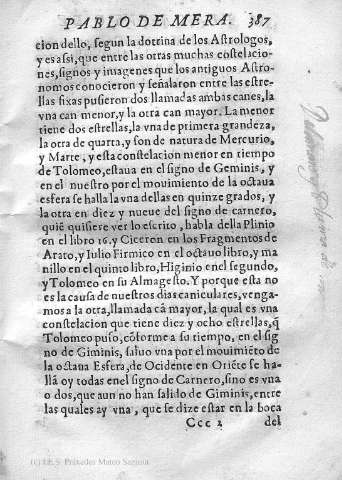 PABLO DE MERA. 387
cion dello, segun la dotrina de los Astrologos,
y es assi, que entre las otras muchas cõstelacio-
nes, signos y imagenes que los antiguos Astro-
nomos conocieron y señalaron entre las estre-
llas fixas pusieron dos llamadas ambas canes, la
vna can menor, y la otra can mayor. La menor
tiene dos estrellas, la vna de primera grandeza,
la otra de quarta, y son de natura de Mercurio,
y Marte, y esta constelacion menor en tiempo
de Tolomeo, estaua en el signo de Geminis, y
en el nuestro por el mouimiento de la octaua
esfera se halla la vna dellas en quinze grados, y
la otra en diez y nueue del signo de carnero,
quiẽ quisiere ver lo escrito, habla della Plinio
en el libro 16. y Ciceron en los Fragmentos de
Arato, y Iulio Firmico en el octauo libro, y ma
nilio en el quinto libro, Higinio enel segundo,
y Tolomeo en su Almagesto. Y porque esta no
es la causa de nuestros dias caniculares, venga-
mos a la otra, llamada cã mayor, la qual es vna
constelacion que tiene diez y ocho estrellas, q̃
Tolomeo puso, cõforme a su tiempo, en el sig
no de Giminis, saluo vna por el mouimiẽto de
la octaua Esfera, de Ocidente en Oriẽte se ha-
llã oy todas enel signo de Carnero, sino es vna
o dos, que aun no han salido de Giminis, entre
las quales ay vna, que se dize estar en la boca
Ccc 2 del
(c) I.E.S. Práxedes Mateo Sagasta